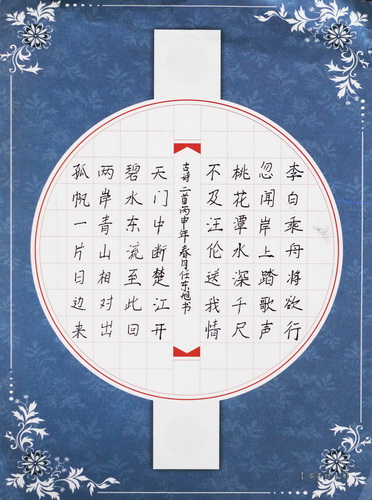 李白乘舟将欲行
忽闻岸上踏歌声
桃花潭水深千尺
不及汪伦送我情
古诗二首丙申年春月任东旭书
天门中断楚江开
碧水东流至此回
两岸青山相对出
孤帆一片日边来